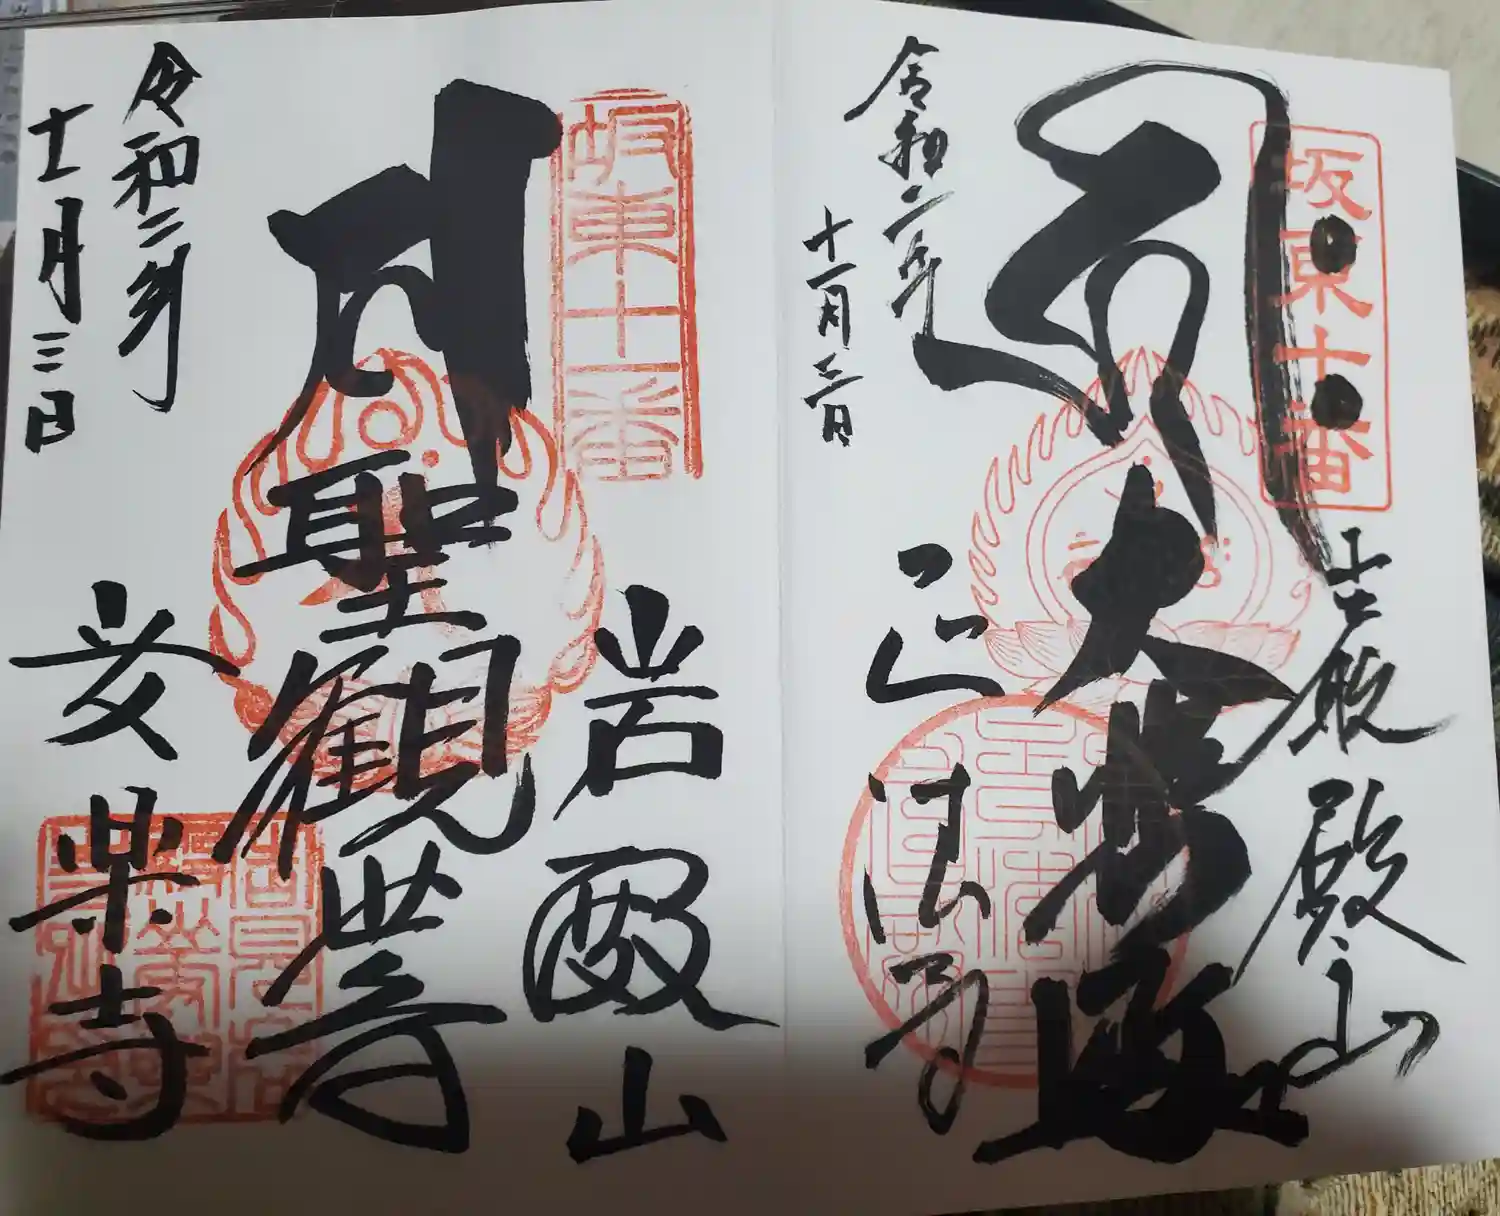 坂東十番
巌殿山
大悲殿
正法寺
令和二年
十一月三日
坂東十一番
岩殿山
聖観世音
安楽寺
令和二年
十一月三日